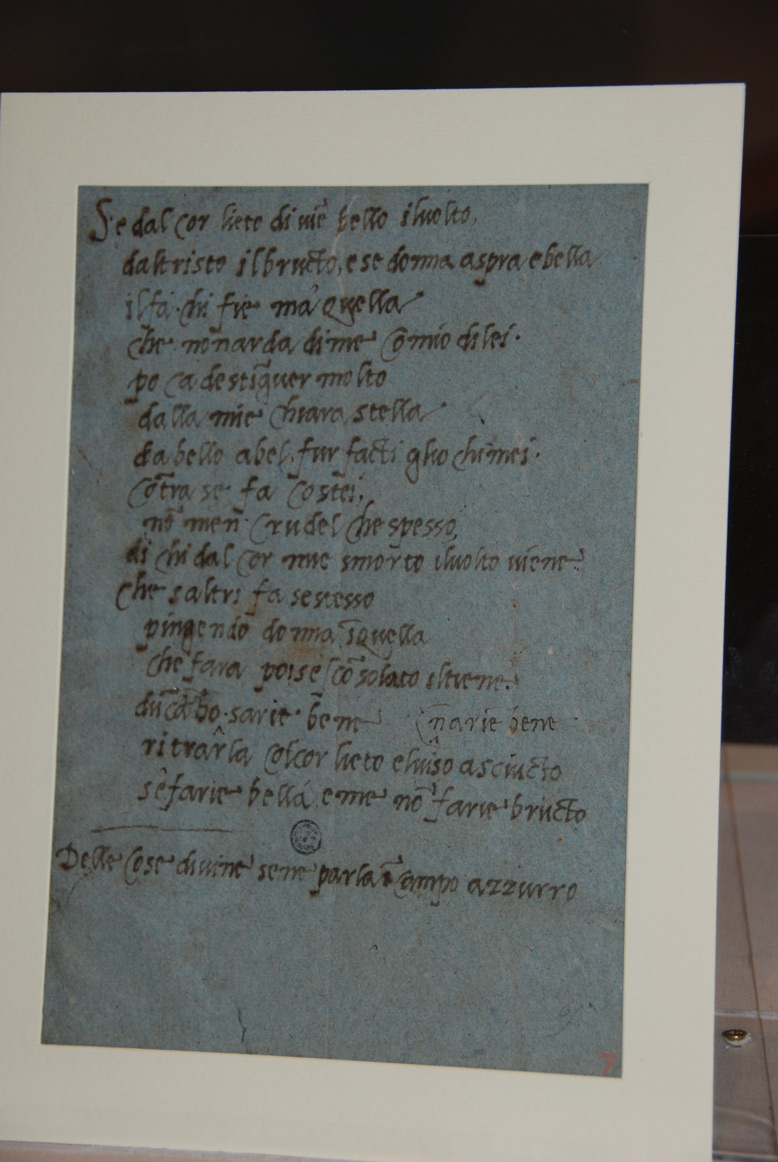 Se dal cor lieto di vie bello iluolto
dal tristo il bructo, e se donna aspra e bella
il fa · chi fie ma quella
che non arda di me com̄io di lei ·
po c a destīguer molto
dalla mie chiara stella
da bello a bel · fur facti gli ochi mei ·
cōtra se fa costei
nō men · crudel che spesso
di chi dal cor mie smorto iluolto uiene
che s altri fa se stesso
pingendo donna ī quella
che fara poi se scōsolato il tiene
dūc ābo · sarie · bene n̄ arie bene
ritrarla col cor lieto eluiso asciucto
se farie bella e me nō farie bructo
Delle cose diuine sene parla ī campo azzurro
7